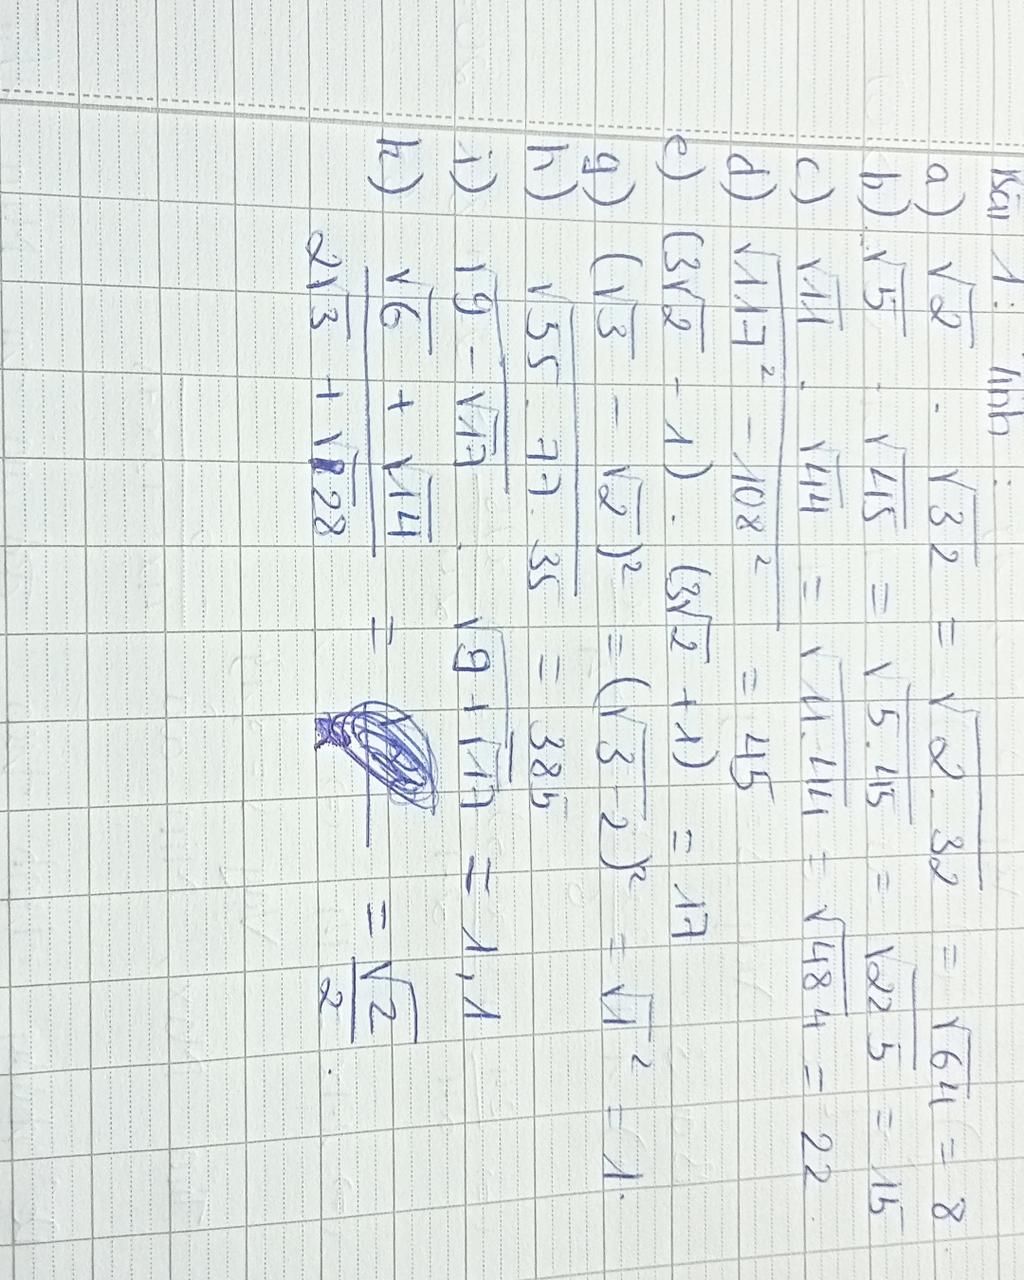 Bài 1: Tính:
a) √2 . √32 = √2.32 = √64 = 8
b) √5 . √45 = √5.45 = √225 = 15
c) √11 . √44 = √11.44 = √484 = 22
d) √117² - 108² = 45
e) (3√2 - 1) . (3√2 + 1) = 17
g) (√3 - √2)² = (√3-2)² = √1² = 1.
h) √55.77.35 = 385
i) √9-√17 . √9+√17 = 1,1
k) √6 + √14 / 2√3 + √28 = = √2 / 2 .